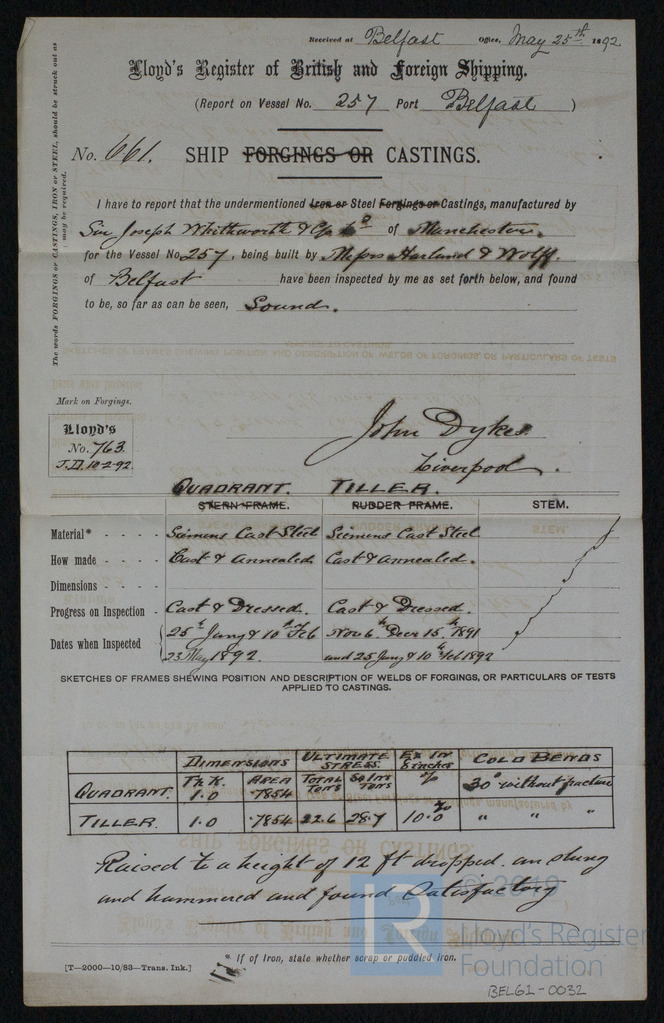 Received at Belfast Office, May 25th 1892
Lloyd's Register of British and Foreign Shipping.
(Report on Vessel No. 257 Port Belfast )
No. 661. SHIP FORGINGS OR CASTINGS.
The words FORGINGS or CASTINGS, IRON or STEEL, should be struck out as may be required.
I have to report that the undermentioned Iron or Steel Forgings or Castings, manufactured by
Sir Joseph Whitworth & Co Ld of Manchester.
for the Vessel No. 257, being built by Messrs Harland & Wolff.
of Belfast have been inspected by me as set forth below, and found
to be, so far as can be seen, Sound.
Mark on Forgings.
Lloyd's
No. 763.
J.D. 10-2-92.
John Dykes
Liverpool.
QUADRANT. TILLER.
STERN-FRAME. RUDDER FRAME. STEM.
Material* - - - - Siemens Cast Steel Siemens Cast Steel
How made - - - - Cast & Annealed. Cast & Annealed.
Dimensions - - - -
Progress on Inspection - Cast & Dressed. Cast & Dressed.
Dates when Inspected 25th Jany & 10th Feb Nov 6th Decr 15th 1891
23 May 1892. and 25 Jany & 10th Feb 1892
SKETCHES OF FRAMES SHEWING POSITION AND DESCRIPTION OF WELDS OF FORGINGS, OR PARTICULARS OF TESTS
APPLIED TO CASTINGS.
DIMENSIONS ULTIMATE STRESS. Ex IN 8 inches COLD BENDS
TK K. AREA TOTAL TONS SQ INS TONS %
QUADRANT. 1.0 .7854 30° without fracture
TILLER. 1.0 .7854 22.6 28.7 10.0 % " " "
Raised to a height of 12 ft dropped. an slung
and hammered and found Satisfactory
© 2019
LR Lloyd's Register
Foundation
* If of Iron, state whether scrap or puddled iron.
[T—2000—10/83—Trans. Ink.]
BEL61-0032